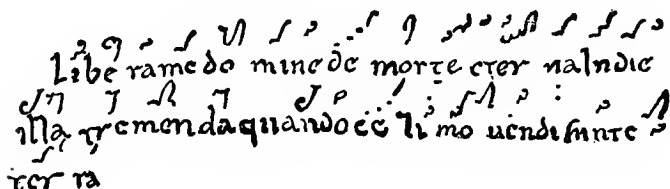 Libe rame do mine de morte eter naIndie
illa tremenda quando cę li mo uendi sunte
ter ra